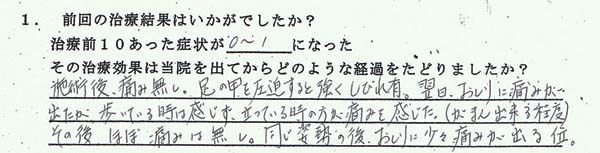 1. 前回の治療結果はいかがでしたか？
治療前１０あった症状が 0〜1 になった
その治療効果は当院を出てからどのような経過をたどりましたか？
施術後、痛み無し。足の甲を圧迫すると強くしびれ有。翌日、おしりに痛みが
出たが、歩いている時は感じず、立っている時の方が痛みを感じた。(がまん出来る程度)
その後 ほぼ痛みは無し。同じ姿勢の後、おしりに少々痛みが出る位。